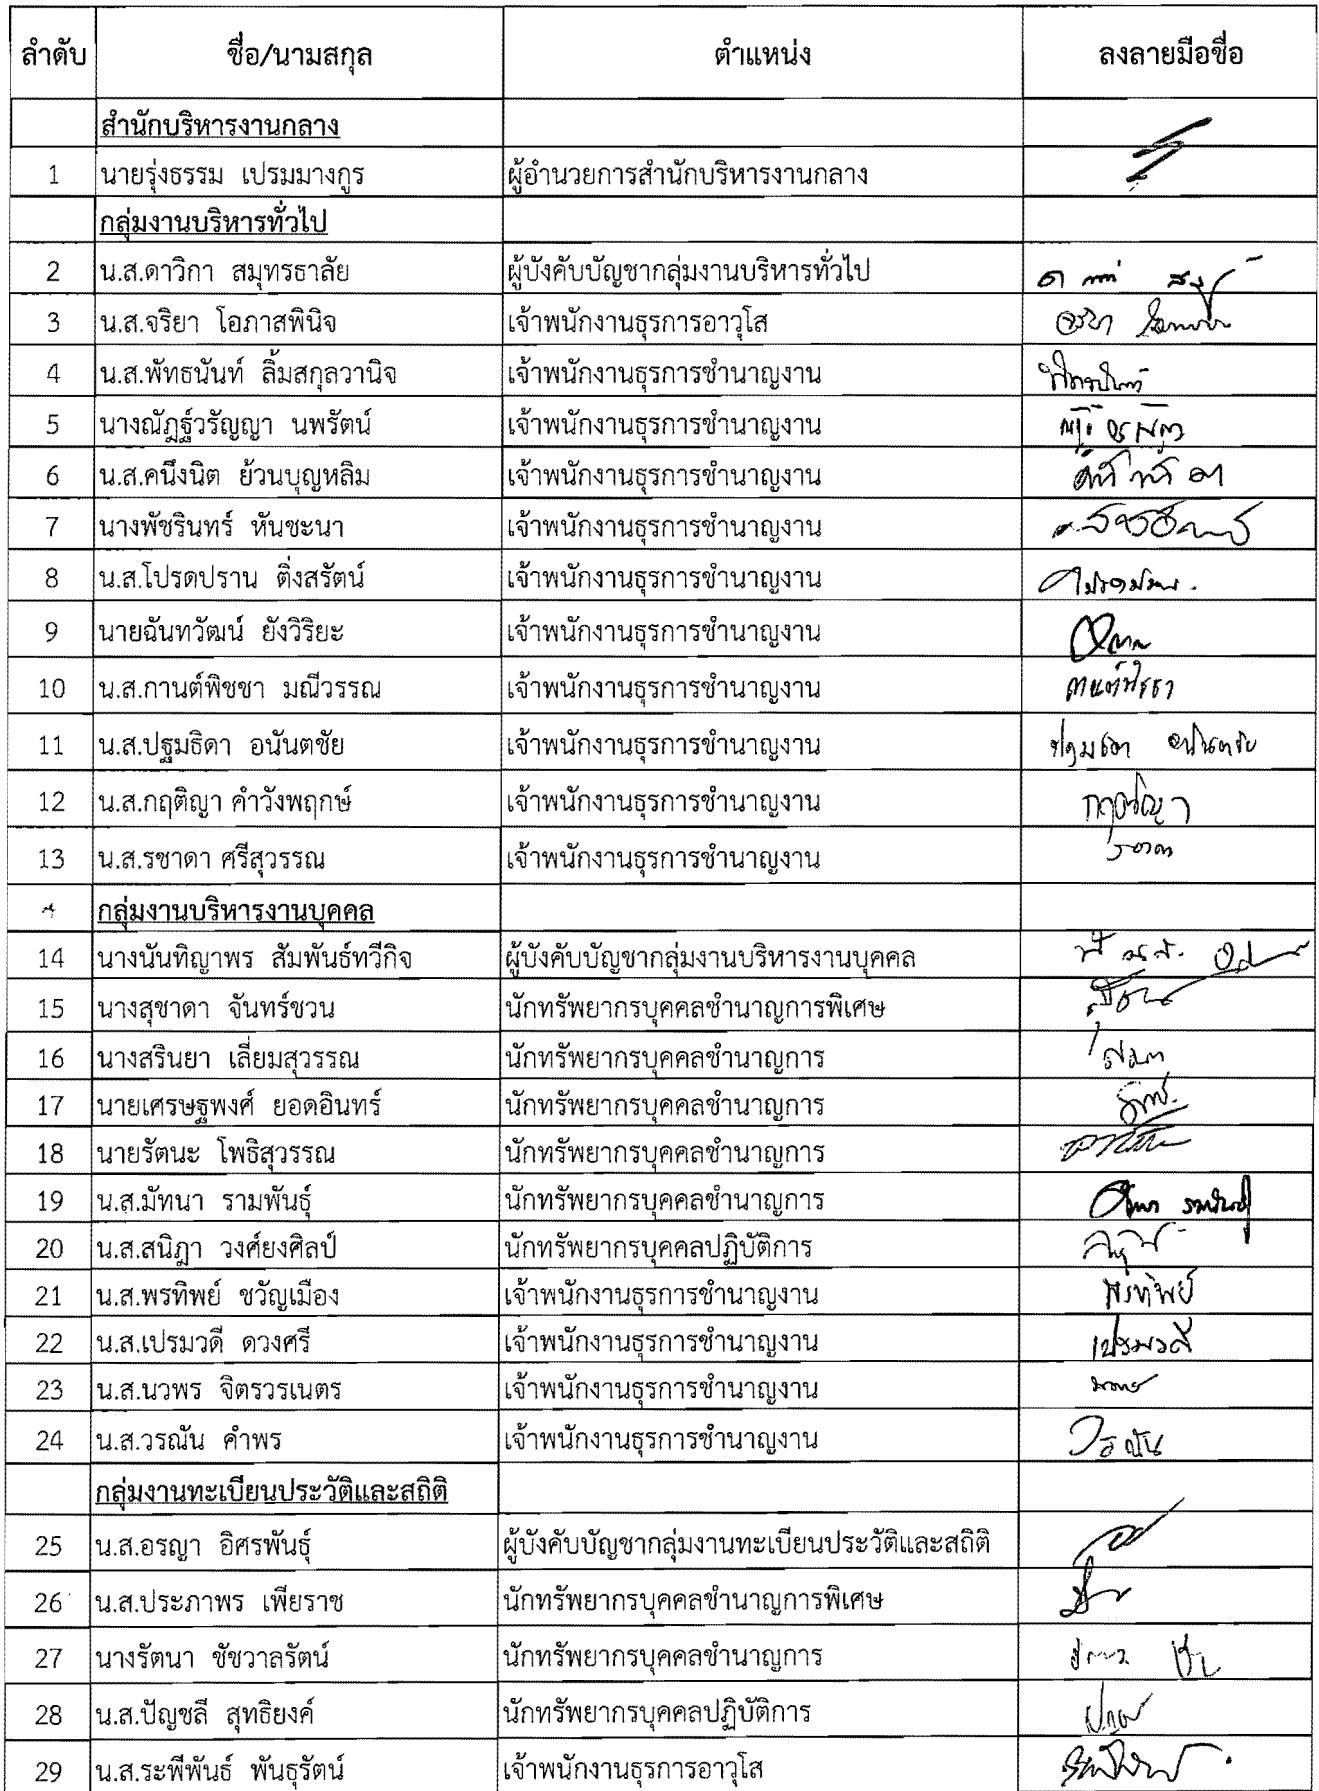 ลำดับ ชื่อ/นามสกุล ตำแหน่ง ลงลายมือชื่อ
สำนักบริหารงานกลาง
1 นายรุ่งธรรม เปรมมางกูร ผู้อำนวยการสำนักบริหารงานกลาง
กลุ่มงานบริหารทั่วไป
2 น.ส.ดาวิกา สมุทรธาลัย ผู้บังคับบัญชากลุ่มงานบริหารทั่วไป
3 น.ส.จริยา โอภาสพินิจ เจ้าพนักงานธุรการอาวุโส จริยา
4 น.ส.พัทธนันท์ ลิ้มสกุลวานิจ เจ้าพนักงานธุรการชำนาญงาน
5 นางณัฏฐ์วรัญญา นพรัตน์ เจ้าพนักงานธุรการชำนาญงาน
6 น.ส.คนึงนิต ย้วนบุญหลิม เจ้าพนักงานธุรการชำนาญงาน
7 นางพัชรินทร์ หันชะนา เจ้าพนักงานธุรการชำนาญงาน
8 น.ส.โปรดปราน ติ่งสรัตน์ เจ้าพนักงานธุรการชำนาญงาน
9 นายฉันทวัฒน์ ยังวิริยะ เจ้าพนักงานธุรการชำนาญงาน
10 น.ส.กานต์พิชชา มณีวรรณ เจ้าพนักงานธุรการชำนาญงาน กานต์พิชชา
11 น.ส.ปฐมธิดา อนันตชัย เจ้าพนักงานธุรการชำนาญงาน ปฐมธิดา อนันตชัย
12 น.ส.กฤติญา คำวังพฤกษ์ เจ้าพนักงานธุรการชำนาญงาน กฤติญา
13 น.ส.รชาดา ศรีสุวรรณ เจ้าพนักงานธุรการชำนาญงาน รชาดา
กลุ่มงานบริหารงานบุคคล
14 นางนันทิญาพร สัมพันธ์ทวีกิจ ผู้บังคับบัญชากลุ่มงานบริหารงานบุคคล
15 นางสุชาดา จันทร์ชวน นักทรัพยากรบุคคลชำนาญการพิเศษ
16 นางสรินยา เลี่ยมสุวรรณ นักทรัพยากรบุคคลชำนาญการ
17 นายเศรษฐพงศ์ ยอดอินทร์ นักทรัพยากรบุคคลชำนาญการ
18 นายรัตนะ โพธิสุวรรณ นักทรัพยากรบุคคลชำนาญการ
19 น.ส.มัทนา รามพันธุ์ นักทรัพยากรบุคคลชำนาญการ
20 น.ส.สนิฎา วงศ์ยงศิลป์ นักทรัพยากรบุคคลปฏิบัติการ
21 น.ส.พรทิพย์ ชวัญเมือง เจ้าพนักงานธุรการชำนาญงาน พรทิพย์
22 น.ส.เปรมวดี ดวงศรี เจ้าพนักงานธุรการชำนาญงาน เปรมวดี
23 น.ส.นวพร จิตรวรเนตร เจ้าพนักงานธุรการชำนาญงาน
24 น.ส.วรณัน คำพร เจ้าพนักงานธุรการชำนาญงาน วรณัน
กลุ่มงานทะเบียนประวัติและสถิติ
25 น.ส.อรญา อิศรพันธุ์ ผู้บังคับบัญชากลุ่มงานทะเบียนประวัติและสถิติ
26 น.ส.ประภาพร เพียราช นักทรัพยากรบุคคลชำนาญการพิเศษ
27 นางรัตนา ชัชวาลรัตน์ นักทรัพยากรบุคคลชำนาญการ
28 น.ส.ปัญชลี สุทธิยงค์ นักทรัพยากรบุคคลปฏิบัติการ
29 น.ส.ระพีพันธ์ พันธุรัตน์ เจ้าพนักงานธุรการอาวุโส